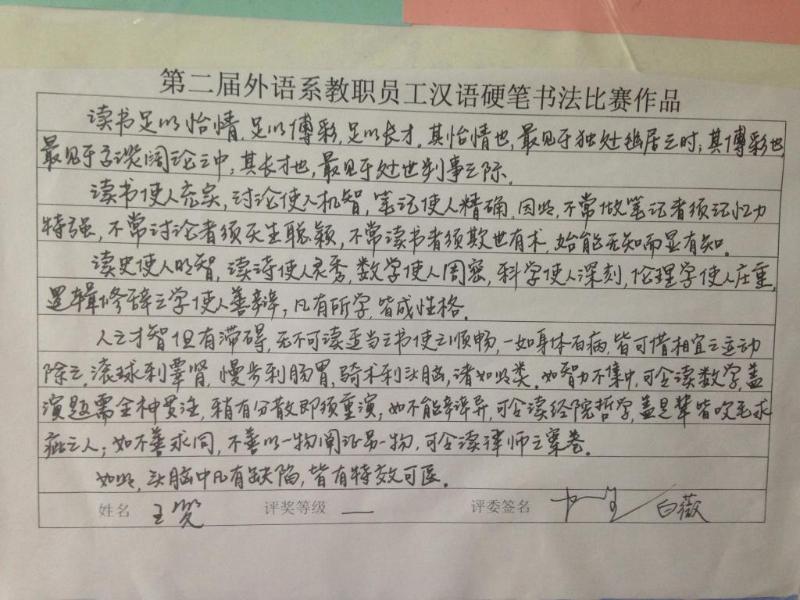 第二届外语系教职员工汉语硬笔书法比赛作品
读书足以怡情,足以傅彩,足以长才。其怡情也,最见于独处幽居之时;其傅彩也,
最见于高谈阔论之中,其长才也,最见于处世判事之际。
读书使人充实,讨论使人机智,笔记使人精确,因此,不常做笔记者须记忆力
特强,不常讨论者须天生聪颖,不常读书者须欺世有术,始能无知而显有知。
读史使人明智,读诗使人灵秀,数学使人周密,科学使人深刻,伦理学使人庄重,
逻辑修辞之学使人善辩,凡有所学,皆成性格。
人之才智但有滞碍,无不可读适当之书使之顺畅,一如身体百病,皆可借相宜之运动
除之。滚球利睾肾,慢步利肠胃,骑术利头脑,诸如此类。如智力不集中,可令读数学,盖
演题需全神贯注,稍有分散即须重演,如不能辨异,可令读经院哲学,盖是辈皆吹毛求
疵之人;如不善求同,不善以一物阐证另一物,可令读律师之案卷。
如此,头脑中凡有缺陷,皆有特效可医。
姓名 王 评奖等级 一 评委签名 白薇